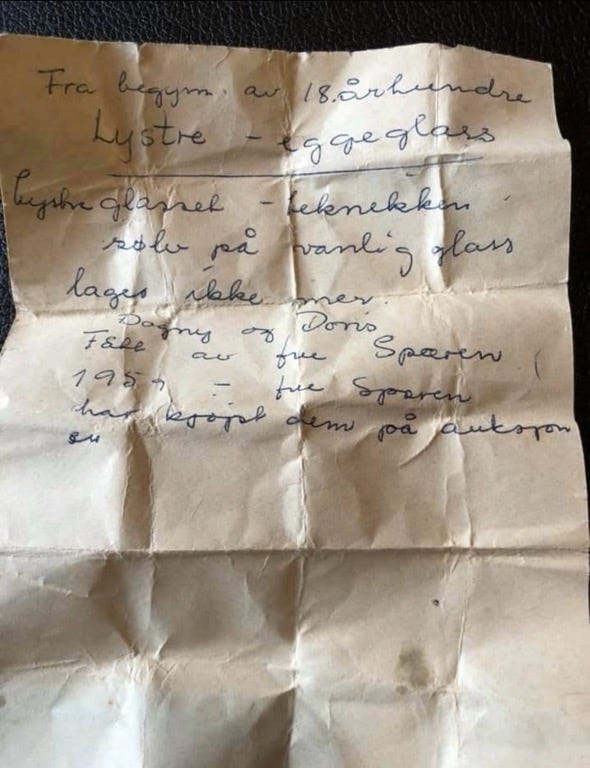 Fra begynn. av 18. århundre
Lystre - eggeglass
Lystre glasset - teknikken
sølv på vanlig glass
lages ikke mer.
Dagny og Doris
av frue Sparen
195 - frue Sparen
har kjøpt dem på auksjon